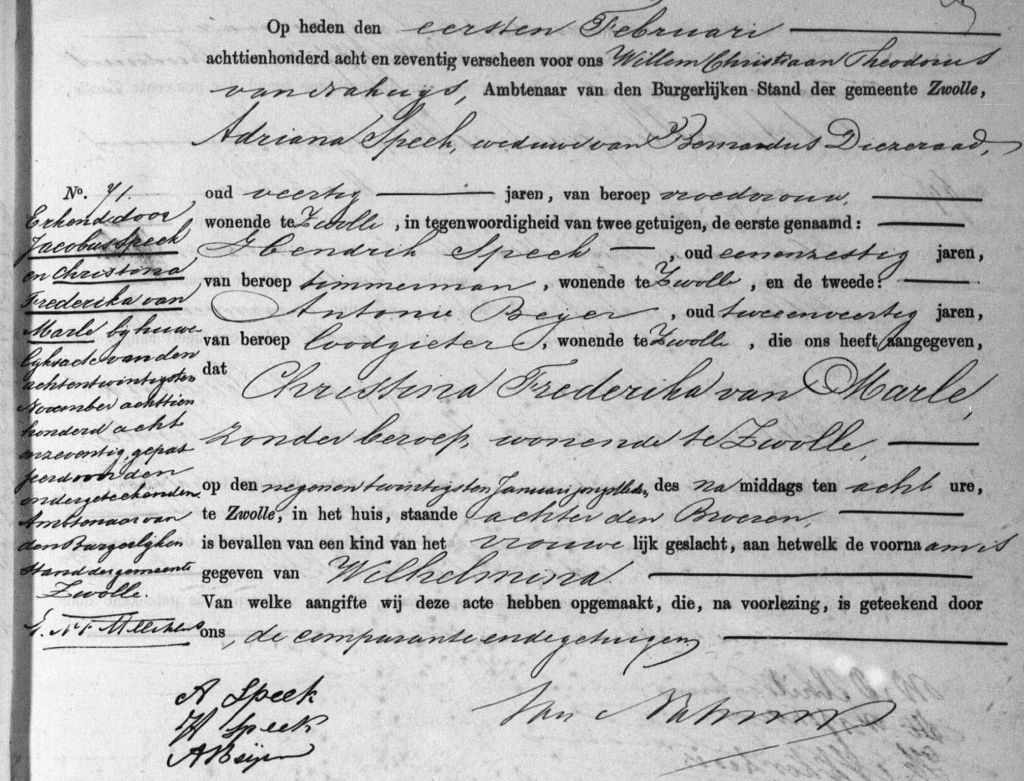 Op heden den eersten Februari
achttienhonderd acht en zeventig verscheen voor ons Willem Christiaan Theodorus
van Nahuys, Ambtenaar van den Burgerlijken Stand der gemeente Zwolle,
Adriana Speek, weduwe van Bernardus Diezeraad,
oud veertig jaren, van beroep vroedvrouw,
wonende te Zwolle, in tegenwoordigheid van twee getuigen, de eerste genaamd:
Hendrik Speek, oud eenenzestig jaren,
van beroep timmerman, wonende te Zwolle, en de tweede:
Antonie Beyer, oud tweeenveertig jaren,
van beroep loodgieter, wonende te Zwolle, die ons heeft aangegeven,
dat Christina Frederika van Marle,
zonder beroep, wonende te Zwolle,
op den negenentwintigsten Januari jongstleden, des namiddags ten acht ure,
te Zwolle, in het huis, staande achter den Broeren,
is bevallen van een kind van het vrouwelijk geslacht, aan hetwelk de voornaam is
gegeven van Wilhelmina.
Van welke aangifte wij deze acte hebben opgemaakt, die, na voorlezing, is geteekend door
ons, de comparante en de getuigen
No. 71.
Erkend door
Jacobus Speek
en Christina
Frederika van
Marle by huwe-
lyksacte van den
achtentwintigsten
November achttien
honderd acht
enzeventig, gepas
seerd voor den
ondergeteekenden
Ambtenaar van
den Burgerlyken
Stand der gemeente
Zwolle.
A Speek
H Speek
A Beijer